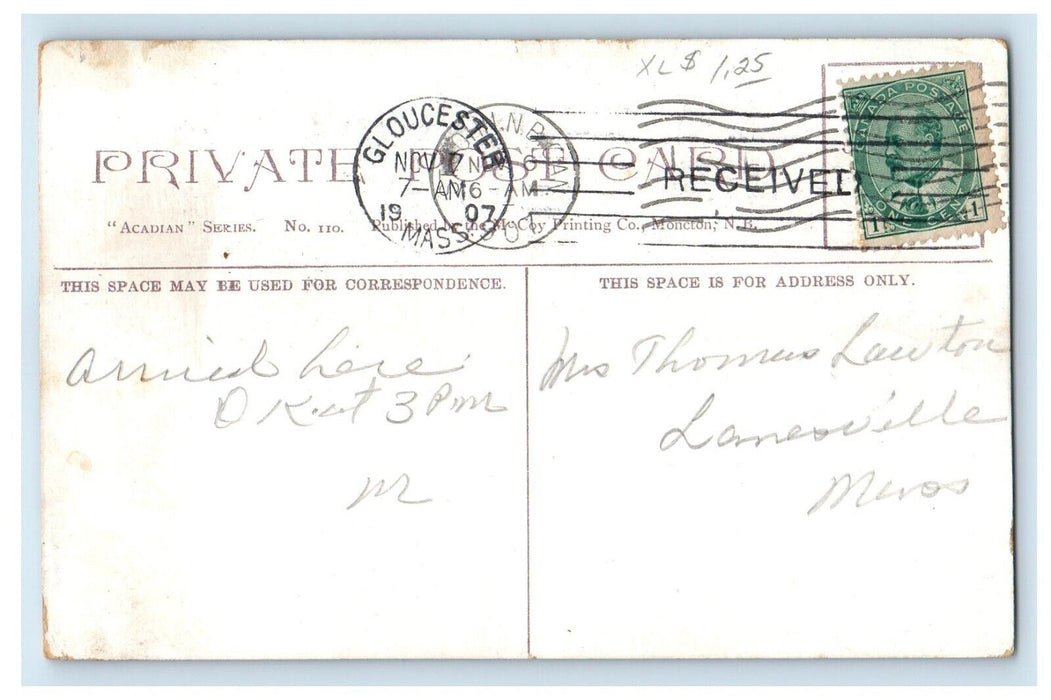 XL $ 1,25
PRIVATE POST CARD
GLOUCESTER
NOV 7
7-AM
1907
MASS.
6-AM
RECEIVED
CANADA POSTAGE
ONE CENT
1 1
"ACADIAN" SERIES. No. 110. Published by the McCoy Printing Co., Moncton, N. B.
THIS SPACE MAY BE USED FOR CORRESPONDENCE.
THIS SPACE IS FOR ADDRESS ONLY.
Arrived here
O K at 3 P m
M
Mrs Thomas Lawton
Lanesville
Mass